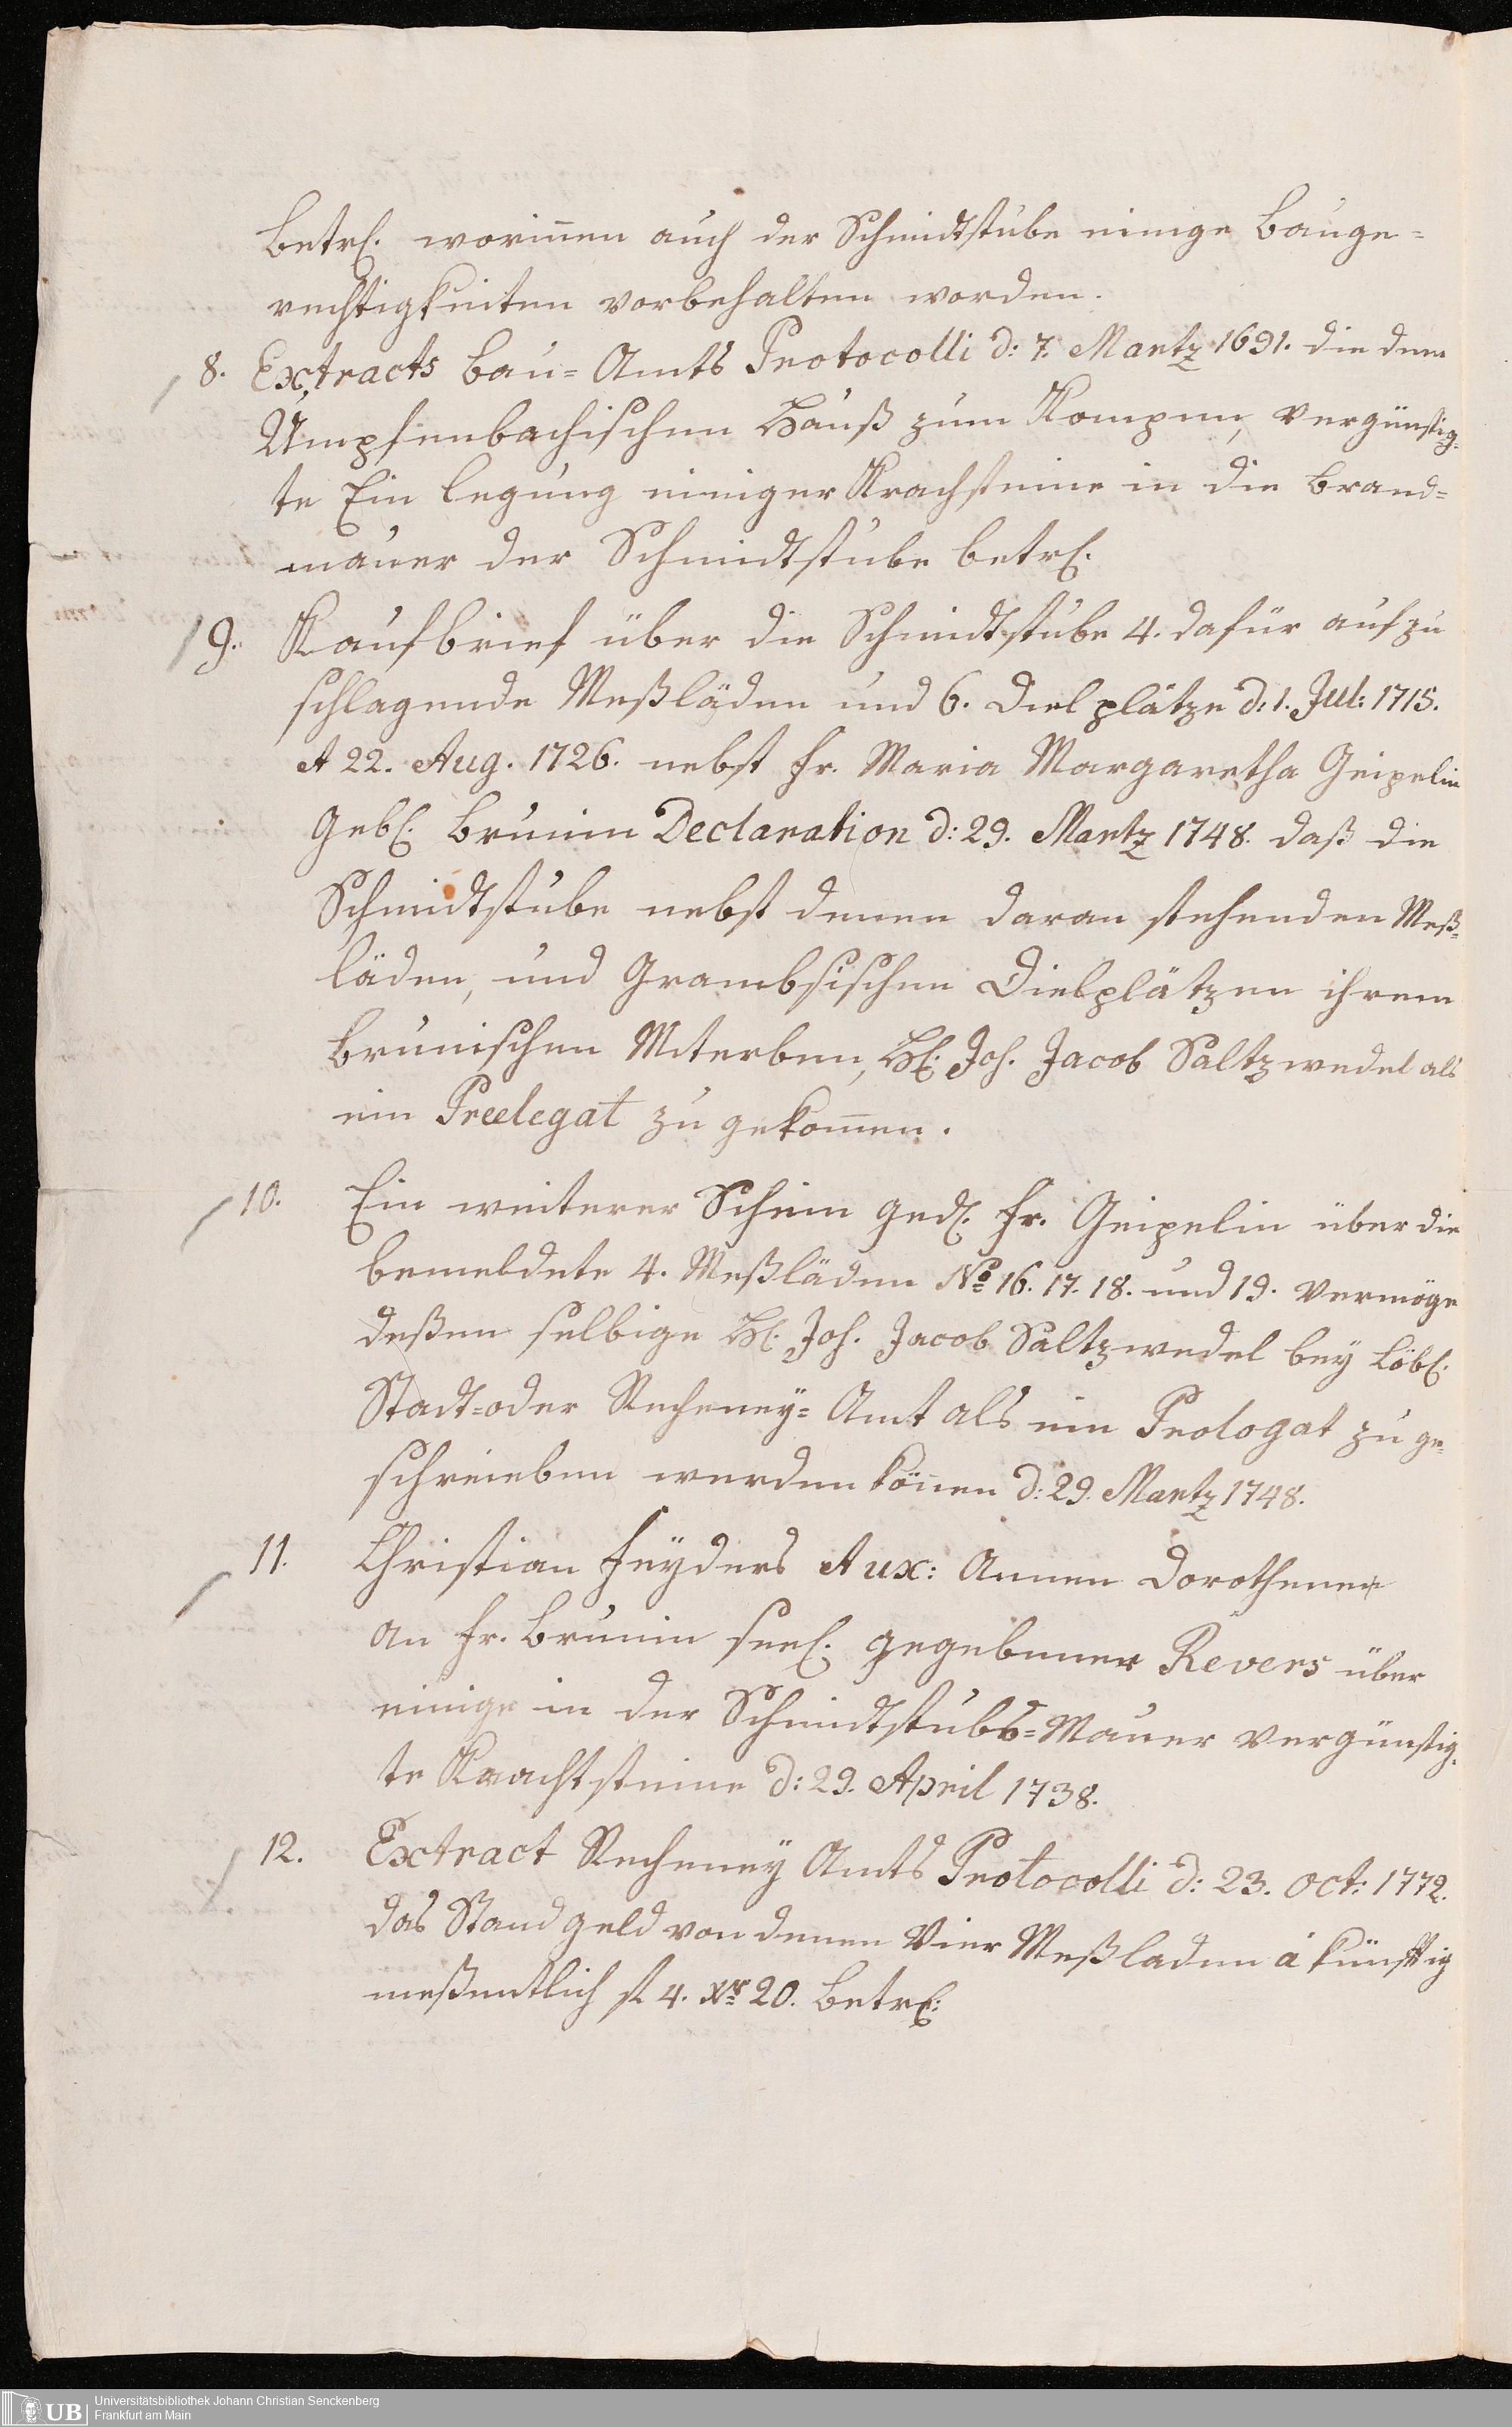 betrl. worinnen auch der Schmidtstube einige Bauge=
rechtigkeiten vorbehalten worden.
8. Extracts Bau= Amts Protocolli d: 7. Martz 1691. die dem
Umpfenbachischen Hauß zum Kompen, vergünstig=
te Ein legung einiger Krachsteine in die Brand=
mauer der Schmidtstube betrl.
9. Kaufbrief über die Schmidtstube 4. dafür auf zu
schlagende Meßläden und 6. Dielplätze d: 1. Jul: 1715.
et 22. Aug. 1726. nebst Fr. Maria Margaretha Geipelin
Gebl. Brunin Declaration d: 29. Martz 1748. daß die
Schmidtstube nebst denen daran stehenden Meß=
läden, und Grambsischen Dielplätzen ihrem
Brunischen Miterben, Hl. Joh. Jacob Saltzwedel als
ein Preelegat zu gekom̄en.
10. Ein weiterer Schein gedl. Fr. Geipelin über die
bemeldete 4. Meßläden No 16. 17. 18. und 19. vermöge
deßen selbige Hl. Joh. Jacob Saltzwedel bey Löbl.
Stadt=oder Recheney= Amt als ein Prologat zu ge=
schrieben werden kön̄en d: 29. Martz 1748.
11. Christian Feyders et ux: Annen Dorotheen
an Fr. Brunin seel. gegebener Revers über
einige in der Schmidtstubs=Mauer vergünstig=
te Krachtsteine d: 29. April 1738.
12. Extract Recheney Amts Protocolli d: 23. Oct: 1772.
das Stand geld von denen Vier Meßladen á künftig
meßentlich fl 4. Xr 20. betrl:
Universitätsbibliothek Johann Christian Senckenberg
Frankfurt am Main
UB